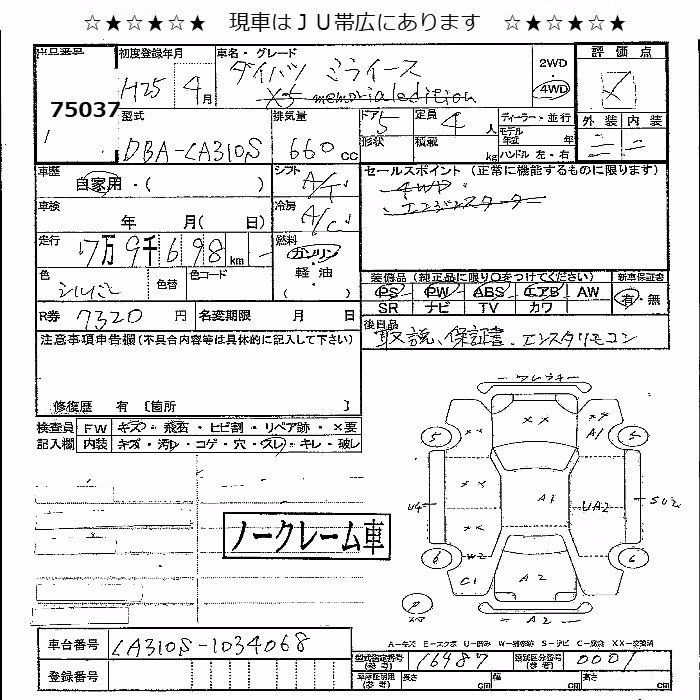 ☆★☆★☆★ 現車はＪＵ帯広にあります ☆★☆★☆★
出品番号 初度登録年月 車名・グレード 評価点
75037 H25 年 4月 ダイハツ ミライース 2WD
Xf memorial edition 4WD
型式 排気量 ドア 5 定員 4 人 ディーラー・並行 外装 内装
DBA-LA310S 660 cc 形状 積載 kg モデル年式 年 ハンドル 左・右 二 二
車歴 自家用・( ) シフト A/T セールスポイント (正常に機能するものに限ります)
車検 年 月( 日) 冷房 A/C 4WD
エンジンスターター
走行 7万9千698km 燃料 ガソリン・軽油・( )
色 シルバー 色替 色コード
装備品 (純正品に限り○をつけてください) 新車保証書
PS PW ABS エアB AW 有・無
SR ナビ TV カワ
R券 7320 円 名変期限 月 日 後日品
取説、保証書、エンスタリモコン
注意事項申告欄(不具合内容等は具体的に記入して下さい)
修復歴 有 〔箇所 〕
検査員 FW キズ・飛石・ヒビ割・リペア跡・×要
記入欄 内装 キズ・汚レ・コゲ・穴・スレ・キレ・破レ
ワレラキ
×× ×× A1
5 5
×× A1 UA2 U4 SU2
××
6 W2 6
C1 A2
P スペア A2
ノークレーム車
A－キズ E－エクボ U－凹み W－補修跡 S－サビ C－腐食 XX－交換済
車台番号 LA310S-1034068
型式指定番号(参考) 16987 類別区分番号(参考) 0001
登録番号 長さ cm 幅 cm 高さ cm